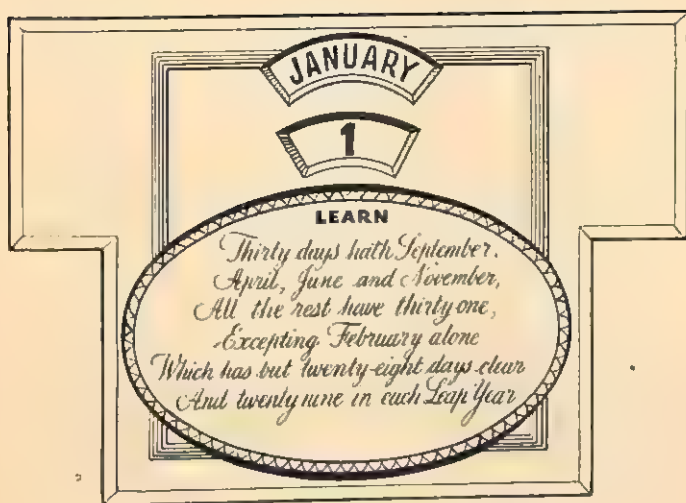 JANUARY
1
LEARN
Thirty days hath September.
April, June and November,
All the rest have thirty one,
Excepting February alone
Which has but twenty-eight days clear
And twenty nine in each Leap Year